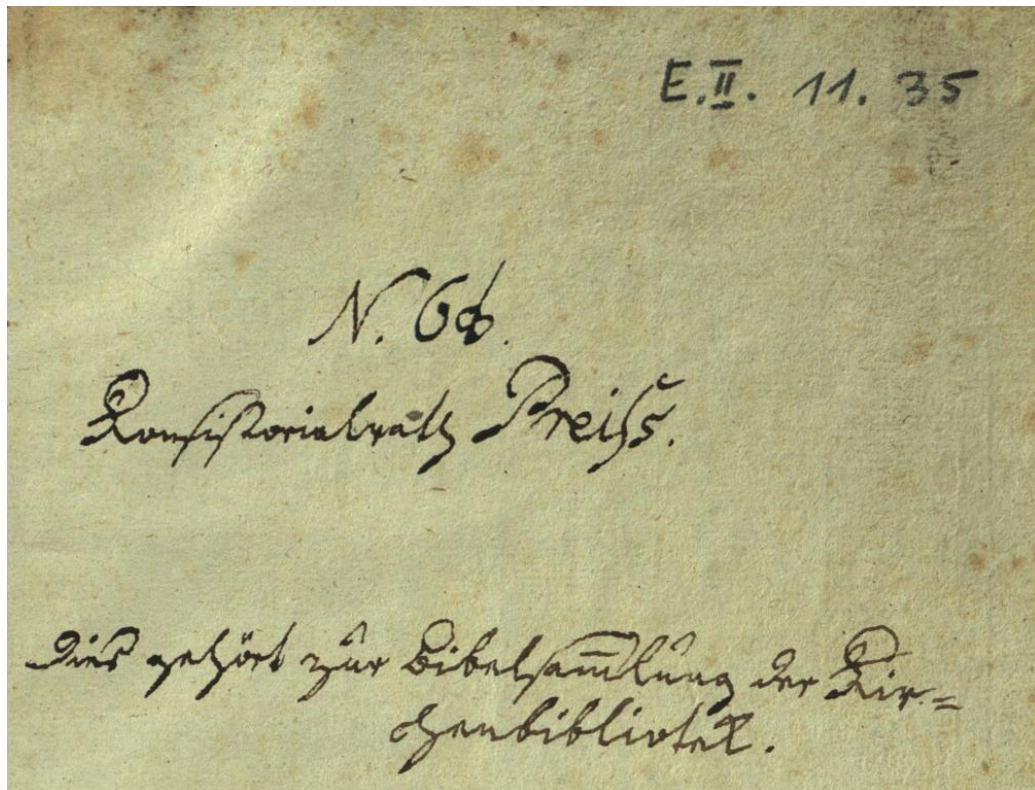 E.II. 11. 35
N. 68.
Konsistorialrath Preiss.
Dies gehört zur Bibelsam̅lung der Kir=
chenbibliotek.